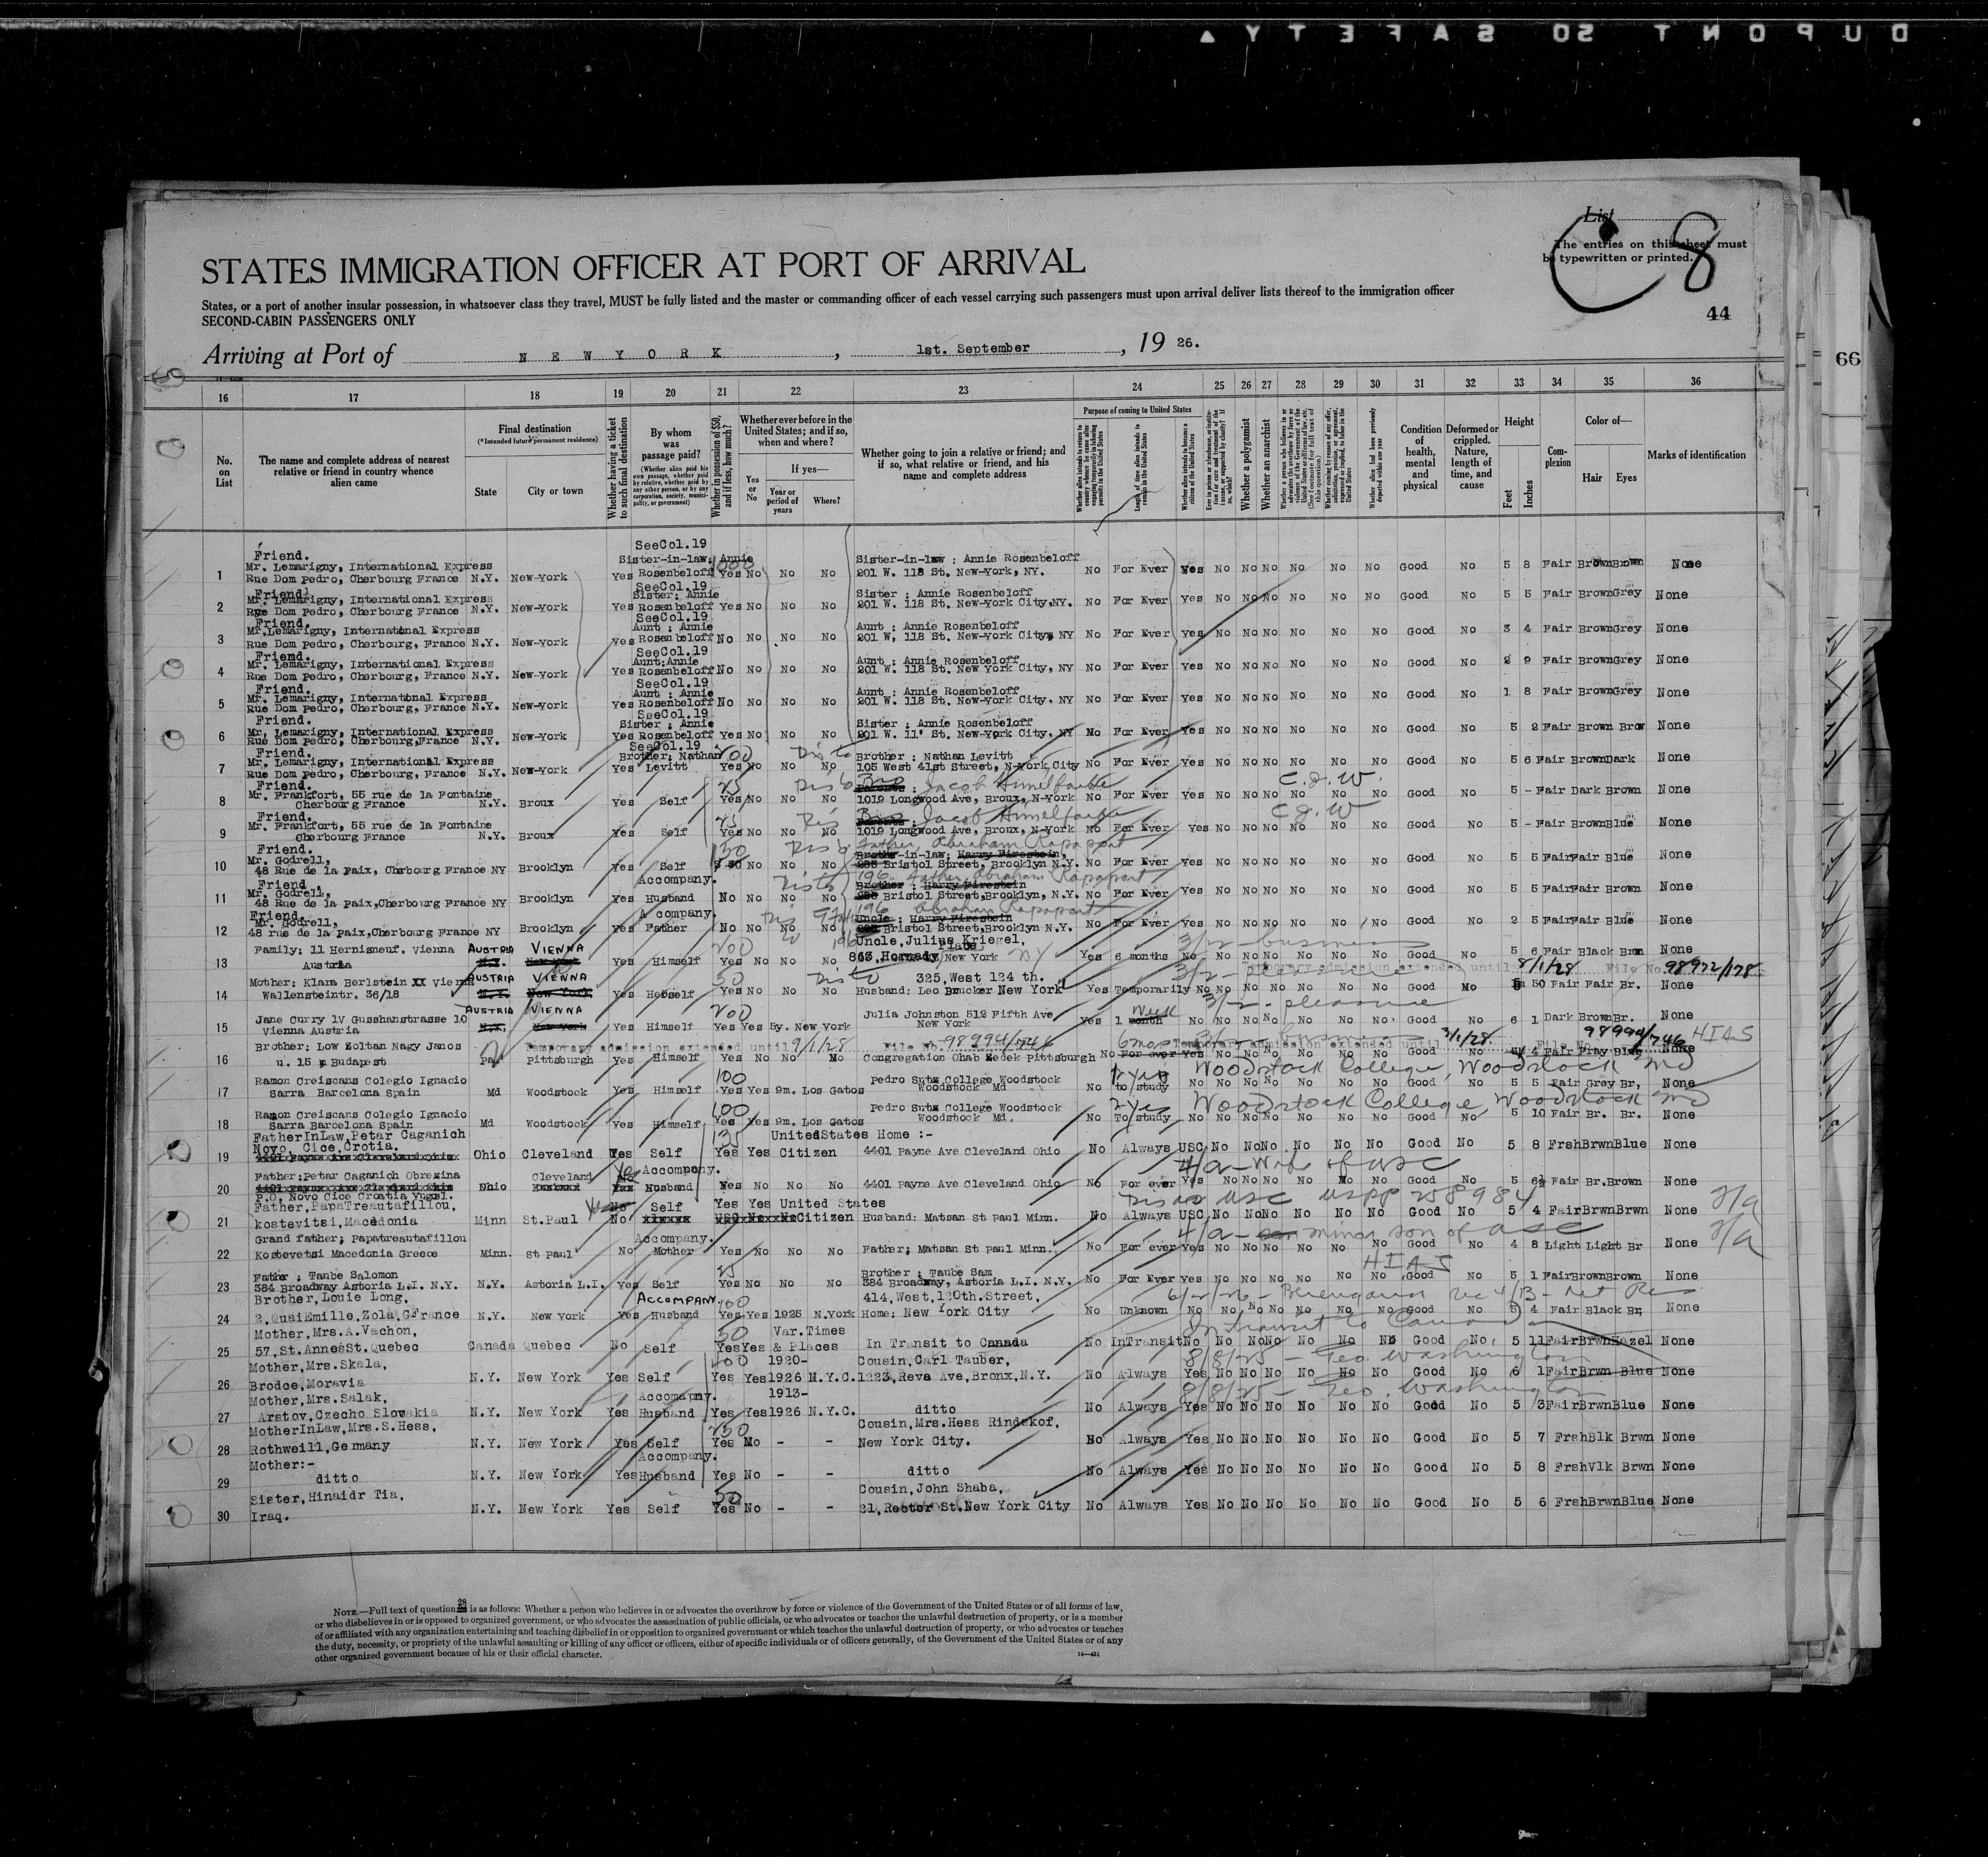 DUPONT SO SAFETY
List
C 8
The entries on this sheet must
be typewritten or printed.
44
66
STATES IMMIGRATION OFFICER AT PORT OF ARRIVAL
States, or a port of another insular possession, in whatsoever class they travel, MUST be fully listed and the master or commanding officer of each vessel carrying such passengers must upon arrival deliver lists thereof to the immigration officer
SECOND-CABIN PASSENGERS ONLY
Arriving at Port of NEW YORK, 1st. September, 19 26.
16 17 18 19 20 21 22 23 24 25 26 27 28 29 30 31 32 33 34 35 36
No. on List
The name and complete address of nearest relative or friend in country whence alien came
Final destination
(*Intended future permanent residence)
State
City or town
Whether having a ticket to such final destination
By whom was passage paid?
(Whether alien paid his own passage, whether paid by relative, whether paid by any other person, or by any corporation, society, municipality, or government)
Whether in possession of $50, and if less, how much?
Whether ever before in the United States; and if so, when and where?
Yes or No
If yes—
Year or period of years
Where?
Whether going to join a relative or friend; and if so, what relative or friend, and his name and complete address
Purpose of coming to United States
Whether a polygamist
Whether an anarchist
Condition of health, mental and physical
Deformed or crippled. Nature, length of time, and cause
Height
Feet
Inches
Complexion
Color of—
Hair
Eyes
Marks of identification
SeeCol.19
Friend. Sister-in-law: Annie 1000 Sister-in-law : Annie Rosenbeloff
Mr. Lemarigny, International Express
1 Rue Dom Pedro, Cherbourg France N.Y. New-York Yes Rosenbeloff Yes No No No 201 W. 118 St. New-York, NY. No For Ever Yes No No No No No No Good No 5 8 Fair Brown Brown None
SeeCol.19
Friend. Sister: Annie Sister : Annie Rosenbeloff
Mr. Lemarigny, International Express
2 Rue Dom Pedro, Cherbourg France N.Y. New-York Yes Rosenbeloff Yes No No No 201 W. 118 St. New-York City,NY. No For Ever Yes No No No No No No Good No 5 5 Fair Brown Grey None
SeeCol.19
Friend. Aunt : Annie Aunt : Annie Rosenbeloff
Mr.Lemarigny, International Express
3 Rue Dom Pedro, Cherbourg, France N.Y. New-York Yes Rosenbeloff No No No No 201 W, 118 St. New-York City, NY No For Ever Yes No No No No No No Good No 3 4 Fair Brown Grey None
SeeCol.19
Friend. Aunt:Annie Aunt : Annie Rosenbeloff
Mr. Lemarigny, International Express
4 Rue Dom Pedro, Cherbourg, France N.Y. New-York Yes Rosenbeloff No No No No 201 W. 118 St. New York City, NY No For Ever Yes No No No No No No Good No 2 9 Fair Brown Grey None
SeeCol.19
Friend. Aunt : Annie Aunt : Annie Rosenbeloff
Mr. Lemarigny, International Express
5 Rue Dom Pedro, Cherbourg, France N.Y. New-York Yes Rosenbeloff No No No No 201 W. 118 St. New-York City, NY No For Ever Yes No No No No No No Good No 1 8 Fair Brown Grey None
SeeCol.19
Friend. Sister : Annie Sister : Annie Rosenbeloff
Mr. Lemarigny, International Express
6 Rue Dom Pedro, Cherbourg,France N.Y. New-York Yes Rosenbeloff Yes No No No 201 W. 11' St. New-York City, NY No For Ever Yes No No No No No No Good No 5 2 Fair Brown Brow None
SeeCol.19
Friend. Brother: Nathan Brother : Nathan Levitt
Mr. Lemarigny, International Express
7 Rue Dom Pedro, Cherbourg, France N.Y. New-York Yes Levitt Yes No No No 105 West 41st Street, N-York City No For Ever Yes No No No No No No Good No 5 6 Fair Brown Dark None
Friend. 25 Bro : Jacob Himelfarb C.G.W.
Mr. Frankfort, 55 rue de la Fontaine
8 Cherbourg France N.Y. Broux Yes Self Yes No No No 1019 Longwood Ave, Broux, N-York No For Ever Yes No No No No No No Good No 5 - Fair Dark Brown None
Friend. 25 Bro : Jacob Himelfarb C.G.W
Mr. Frankfort, 55 rue de la Fontaine
9 Cherbourg France N.Y. Broux Yes Self Yes No No No 1019 Longwood Ave, Broux, N-York No For Ever Yes No No No No No No Good No 5 - Fair Brown Blue None
Friend. Father, Abraham Rapaport
Mr. Godrell, in-law: Harry Firestein,
10 48 Rue de la Paix, Cherbourg France NY Brooklyn Yes Self No No No Bristol Street, Brooklyn N.Y. No For Ever Yes No No No No No No Good No 5 5 Fair Fair Blue None
Friend. Accompany. 196 Father, Abraham Rapaport
Mr. Godrell, Brother : Harry Firestein
11 48 Rue de la Paix,Cherbourg France NY Brooklyn Yes Husband No No No No Bristol Street,Brooklyn, N.Y. No For Ever Yes No No No No No No Good No 5 5 Fair Fair Brown None
Friend. Accompany. 196 Abraham Rapaport
Mr. Godrell, Uncle : Harry Firestein
12 48 rue de la Paix,Cherbourg France NY Brooklyn yes Father No No No No Bristol Street,Brooklyn N.Y. No For Ever Yes No No No No No No Good No 2 5 Fair Fair Blue None
Family: 11 Hernisneuf. Vienna AUSTRIA VIENNA 200 Uncle,Julius Kriegel, 3/2 - business
13 Austria N.Y. New York Yes Himself Yes No No No 863, Hornady Place New York NY Yes 6 months No No No No No No No Good No 5 6 Fair Black Brn None
Temporary admission extended until 8/1/28 File No. 98972/178
Mother: Klara Berlstein XX Vienna AUSTRIA VIENNA 50 325,West 124 th. 3/2 - pleasure
14 Wallensteintr. 36/18 N.Y. New York Yes Hebself Yes No No No Husband: Leo Brucker New York Yes Temporarily No No No No No No No Good No 50 Fair Fair Br. None
AUSTRIA VIENNA 200 3/2 - pleasure
Jane Curry 1V Gusshanstrasse 10 Julia Johnston 512 Fifth Ave
15 Vienna Austria N.Y. New York Yes Himself Yes Yes 5y. New York New York Yes 1 month Week No No No No No No No Good No 6 1 Dark Brown Br. None
Brother: Low Zoltan Nagy Janos Temporary admission extended until 9/1/28 File No. 98994/746 6 mos Temporary admission extended until 3/1/28 File No. 98994/746 HIAS
16 u. 15 Budapest Pa. Pittsburgh Yes Himself Yes No No No Congregation Ohab Zedek Pittsburgh No For ever Yes No No No No No No Good No 5 4 Fair Fray Blue None
Ramon Creiscans Colegio Ignacio 100 Pedro Sutz College Woodstock 2 yrs Woodstock College, Woodstock Md
17 Sarra Barcelona Spain Md Woodstock Yes Himself Yes Yes 9m. Los Gatos Woodstock Md No to study No No No No No No No Good No 5 5 Fair Grey Br, None
Ramon Creiscans Colegio Ignacio 100 Pedro Sutz College Woodstock 2 yrs Woodstock College, Woodstock Md
18 Sarra Barcelona Spain Md Woodstock Yes Himself Yes Yes 9m. Los Gatos Woodstock Md. No To study No No No No No No No Good No 5 10 Fair Br. Br. None
FatherInLaw,Petar Caganich 135 UnitedStates Home :-
Novo Cice,Crotia.
19 4401 Payne Ave Cleveland Ohio Ohio Cleveland Yes Self Yes Yes Citizen 4401 Payne Ave Cleveland Ohio No Always USC No No No No No No Good No 5 8 Frsh Brwn Blue None
Father:Petar Caganich Obrezina Cleveland Yes Accompony. 4/a - Wife of USC
20 Ohio Husband Yes No No No 4401 Payne Ave Cleveland Ohio No For ever Yes No No No No No No Good No 5 6½ Fair Br. Brown None
P.O. Novo Cice Croatia Yugsl.
Father,PapaTreautafillou, Yes Self Yes Yes United States USC USPP 258984
21 kostevitsi,Macedonia Minn St.Paul No Citizen Husband: Matsan St Paul Minn. No Always USC No No No No No No Good No 5 4 Fair Brwn Brwn None
Grand father; Papatreautafillou Accompany. 4/a - minor son of USC
22 Kostevetsi Macedonia Greece Minn. St Paul No Mother Yes No No No Father; Matsan St Paul Minn. No For ever Yes No No No No No No Good No 4 8 Light Light Br None
Father : Taube Salomon 25 Brother : Taube Sam HIAS
23 384 Broadway Astoria L.I. N.Y. N.Y. Astoria L.I. Yes Self Yes No No No 384 Broadway, Astoria L.I. N.Y. No For Ever Yes No No No No No No Good No 5 1 Fair Brown Brown None
Brother,Louie Long, ACCOMPANY 100 414,West,120th.Street, 6/2/26 - Berengaria
24 2,QuaiEmille,Zola,GFrance N.Y. New York Yes Husband Yes Yes 1925 N.York Home: New York City No Unknown No No No No No No No Good No 5 4 Fair Black Br, None
Mother,Mrs.A.Vachon, 50 Var.Times In transit to Canada
25 57,St.AnnesSt.Quebec Canada Quebec No Self Yes Yes & Places In Transit to Canada No InTransit No No No No No No No Good No, 5 11 Fair Brwn Hazel None
Mother,Mrs.Skala, 1920- Cousin,Carl Tauber, 8/8/25 - Geo. Washington
26 Brodce,Moravia N.Y. New York Yes Self Yes Yes 1926 N.Y.C. 1223,Reva Ave,Bronx,N.Y. No Always Yes No No No No No No Good No 6 1 Fair Brwn Blue None
Mother,Mrs.Salak, Accomapny. 1913- 8/8/25 - Geo. Washington
27 Arstov,Czecho Slovakia N.Y. New York Yes Husband Yes Yes 1926 N.Y.C. ditto No Always Yes No No No No No No Good No 5 3 Fair Brwn Blue None
MotherInLaw,Mrs.S.Hess, 250 Cousin,Mrs.Hess Rindskof,
28 Rothweill,Germany N.Y. New York Yes Self Yes No - - New York City. No Always Yes No No No No No No Good No 5 7 Frsh Blk Brwn None
Mother:- Accompany.
29 ditto N.Y. New York Yes Husband Yes No - - ditto No Always Yes No No No No No No Good No 5 8 Frsh Vlk Brwn None
Sister,Hinaidr Tia, 50 Cousin,John Shaba,
30 Iraq. N.Y. New York Yes Self Yes No - - 21,Rector St.New York City No Always Yes No No No No No No Good No 5 6 Frsh Brwn Blue None
NOTE.—Full text of question 28 is as follows: Whether a person who believes in or advocates the overthrow by force or violence of the Government of the United States or of all forms of law,
or who disbelieves in or is opposed to organized government, or who advocates the assassination of public officials, or who advocates or teaches the unlawful destruction of property, or is a member
of or affiliated with any organization entertaining and teaching disbelief in or opposition to organized government or which teaches the unlawful destruction of property, or who advocates or teaches
the duty, necessity, or propriety of the unlawful assaulting or killing of any officer or officers, either of specific individuals or of officers generally, of the Government of the United States or of any
other organized government because of his or their official character.
14—431